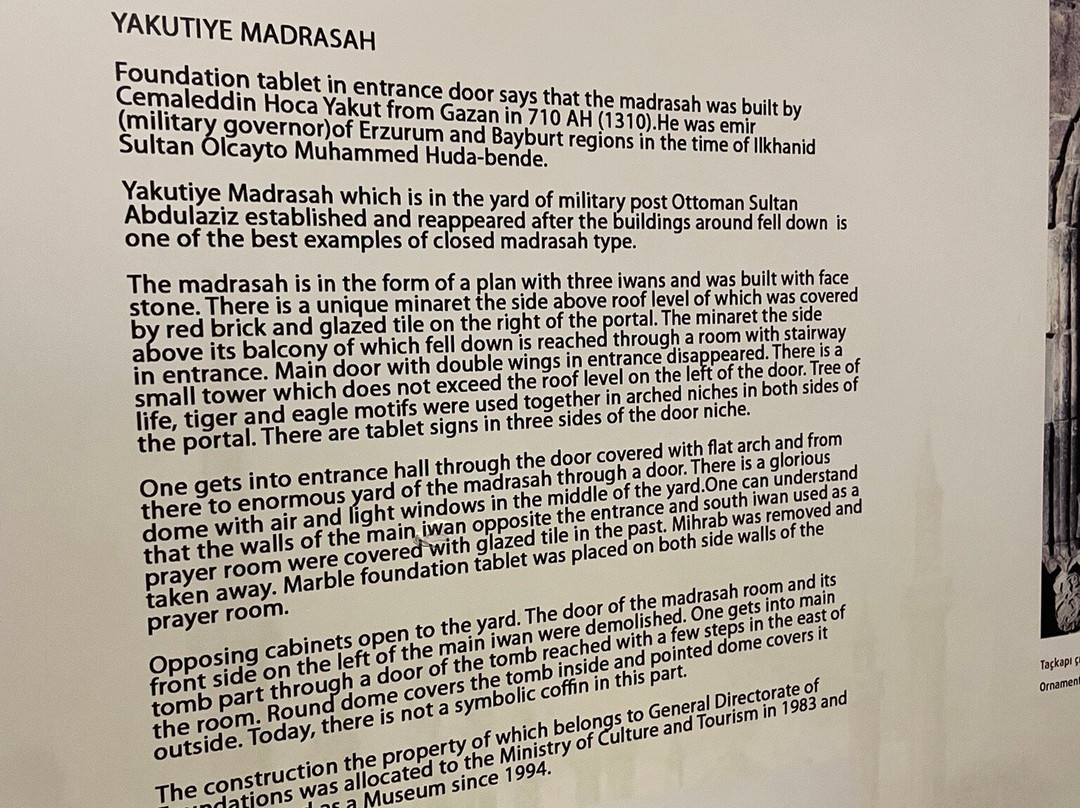 YAKUTIYE MADRASAH
Foundation tablet in entrance door says that the madrasah was built by
Cemaleddin Hoca Yakut from Gazan in 710 AH (1310).He was emir
(military governor)of Erzurum and Bayburt regions in the time of Ilkhanid
Sultan Olcayto Muhammed Huda-bende.
Yakutiye Madrasah which is in the yard of military post Ottoman Sultan
Abdulaziz established and reappeared after the buildings around fell down is
one of the best examples of closed madrasah type.
The madrasah is in the form of a plan with three iwans and was built with face
stone. There is a unique minaret the side above roof level of which was covered
by red brick and glazed tile on the right of the portal. The minaret the side
above its balcony of which fell down is reached through a room with stairway
in entrance. Main door with double wings in entrance disappeared. There is a
small tower which does not exceed the roof level on the left of the door. Tree of
life, tiger and eagle motifs were used together in arched niches in both sides of
the portal. There are tablet signs in three sides of the door niche.
One gets into entrance hall through the door covered with flat arch and from
there to enormous yard of the madrasah through a door. There is a glorious
dome with air and light windows in the middle of the yard.One can understand
that the walls of the main iwan opposite the entrance and south iwan used as a
prayer room were covered with glazed tile in the past. Mihrab was removed and
taken away. Marble foundation tablet was placed on both side walls of the
prayer room.
Opposing cabinets open to the yard. The door of the madrasah room and its
front side on the left of the main iwan were demolished. One gets into main
tomb part through a door of the tomb reached with a few steps in the east of
the room. Round dome covers the tomb inside and pointed dome covers it
outside. Today, there is not a symbolic coffin in this part.
The construction the property of which belongs to General Directorate of
was allocated to the Ministry of Culture and Tourism in 1983 and
as a Museum since 1994.
Taçkapı